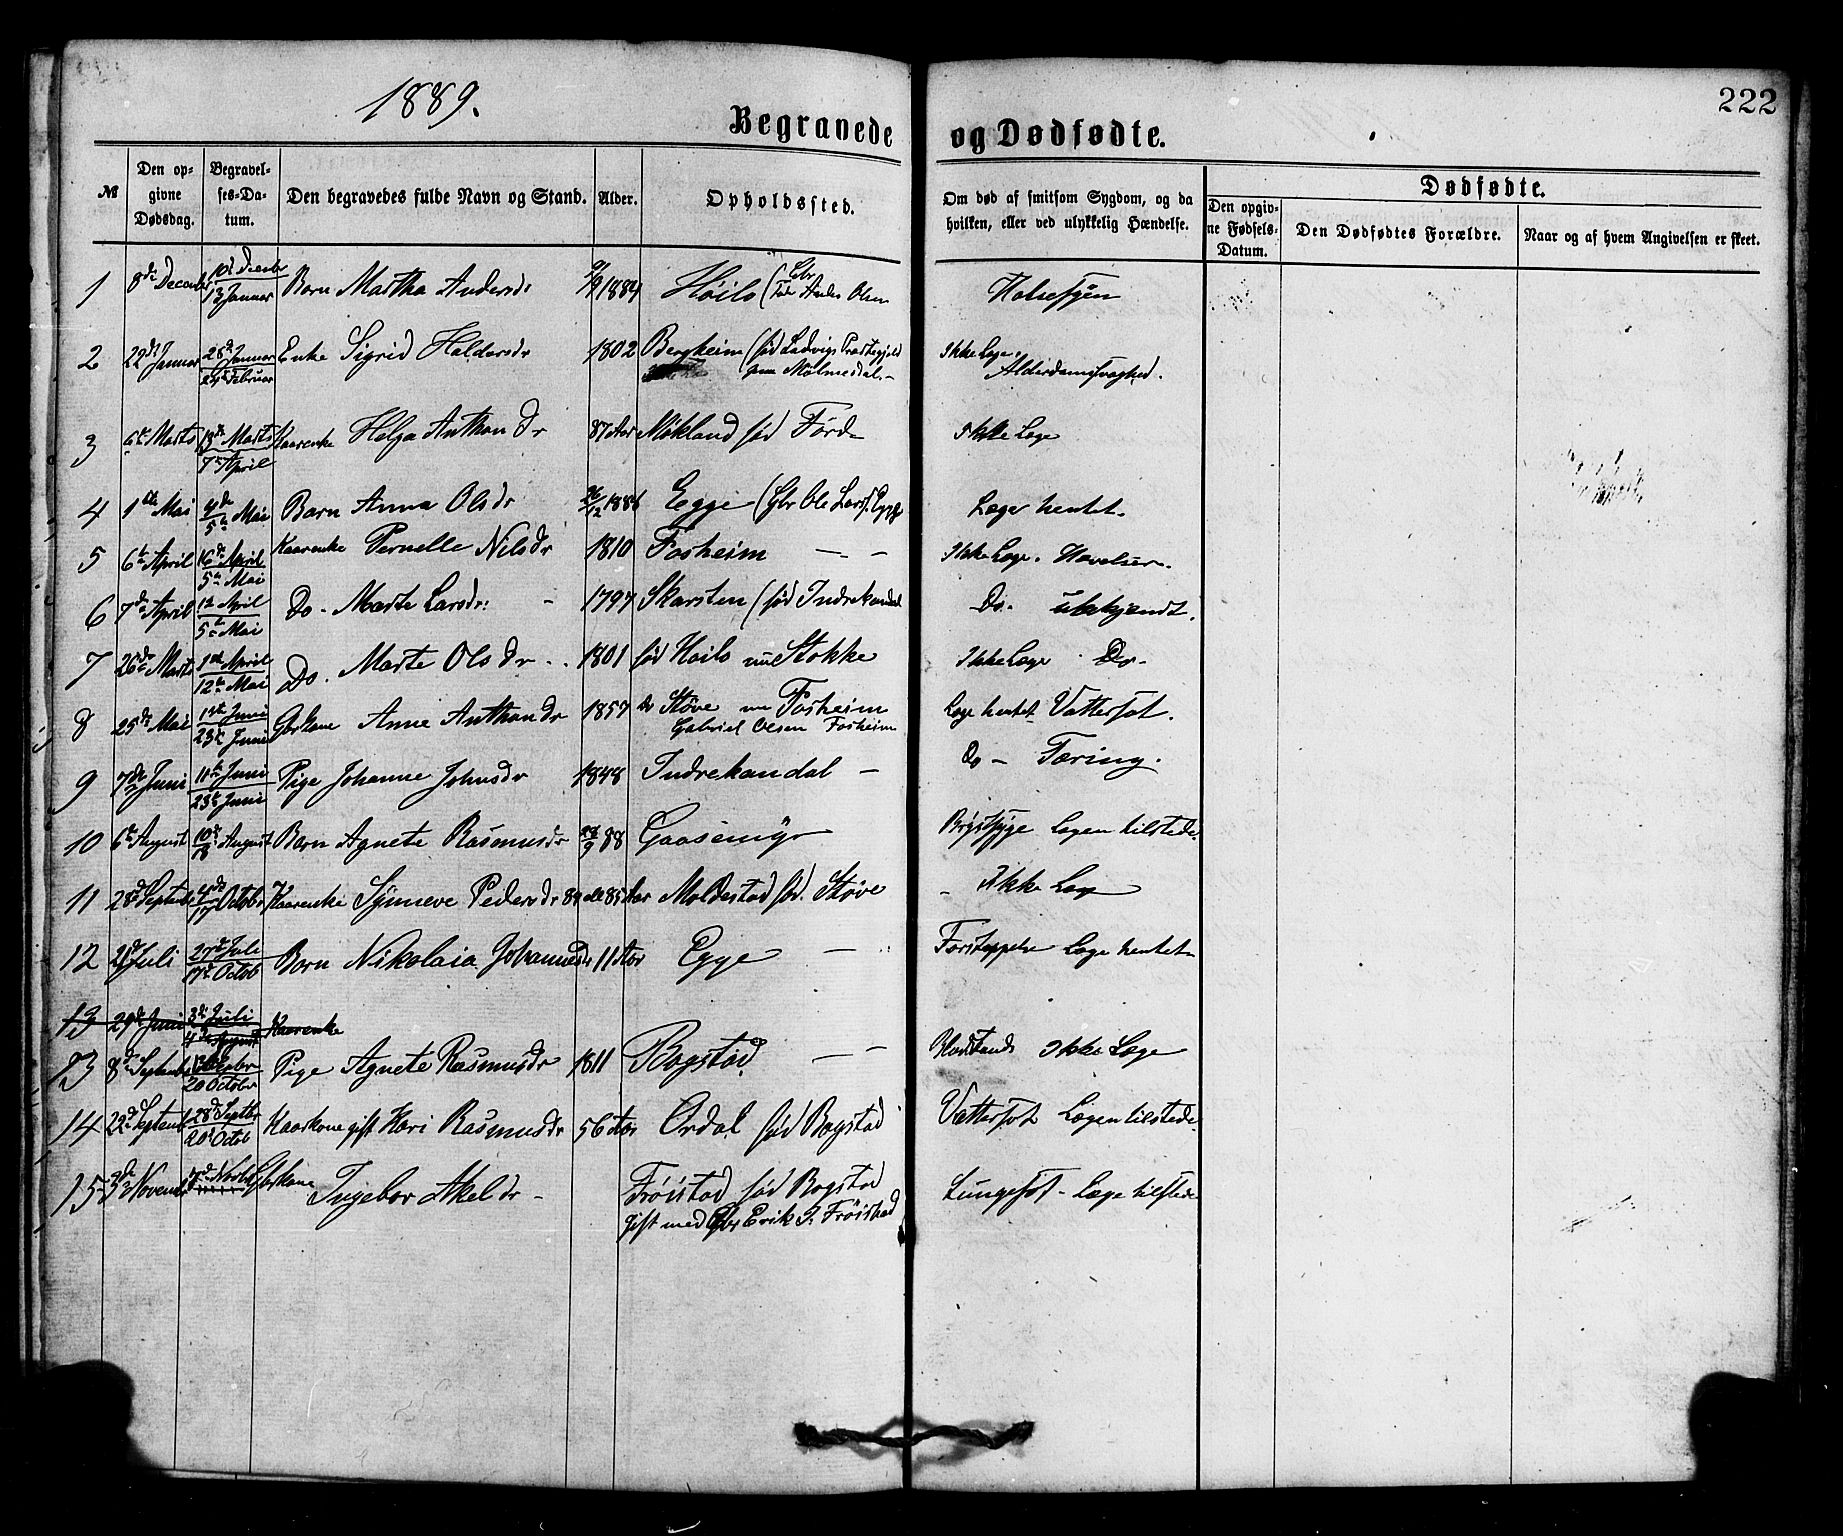 222
1889.
Begravede og Dødfødte.
№ Den opgivne Dødsdag. Begravelses-Datum. Den begravedes fulde Navn og Stand. Alder. Opholdssted. Om død af smitsom Sygdom, og da hvilken, eller ved ulykkelig Hændelse. Dødfødte.
Den opgivne Fødsels-Datum. Den Dødfødtes Forældre. Naar og af hvem Angivelsen er skeet.
1 8de Decembr 13 Januar Barn Martha Andersdr 1884 Høilo (Gbr Anders Olsen
2 22de Januar 28de Januar 24de Februar Enke Sigrid Haldorsdr 1802 Bergheim (fød Ladvigs Præstegjeld Ikke Læge. Alderdomssvaghed.
3 6te Marts 13de Marts 7de April Kaarenke Helga Anthondr 87 Aar Mökland fød Förde Ikke Læge
4 1ste Mai 4de 5te Mai Barn Anna Olsdr 26/12 1886 Egge (Gbr Ole Lars. Egge Læge hentet.
5 6te April 16de April 5te Mai Kaarenke Pernelle Nilsdr 1810 Fosheim — — Ikke Læge. Hævelser.
6 7de April 12 April 5te Mai Do. Marte Larsdr: 1797 Skarsten (fød Indrekandal Do. ubekjendt.
7 26de Marts 1ste April 12te Mai Do. Marte Olsdr 1801 fød Høilo nu Stokke Ikke Læge Do.
8 25de Mai 1ste Juni 23de Juni Gbrkone Anne Anthondr 1857 Støve nu Fosheim Læge hentet Vattersot.
Gabriel Olsen Fosheim
9 7de Juni 11te Juni 23de Juni Pige Johanne Johnsdr 1848 Indrekandal — Do — Tæring.
10 6te August 10de 18 August Barn Agnete Rasmusdr 28/9 88 Gaasemyr Brystsyge Lægen tilstede.
11 28de Septembr 4de 17 Octobr Kaarenke Synneve Pedersdr 84 al 85 Aar Moldestad fød. Støve Ikke Læge
12 21de Juli 27de Juli 17de Octob Barn Nikolaia Johannesdr 11 Aar Egge — Læge hentet
13 29de Juni 3de Juli 4de August Kaarenke
13 8de Septembr 20 Octobr Pige Agnete Rasmusdr 1811 Bogstad — — Ikke Læge
14 22de Septemb 28de Septbr 20de Octob Kaarkone gift Kari Rasmusdr 56 Aar Ordal fød Bogstad Vattersot Lægen tilstede
15 3de Novemb 7de Novbr Gbrkone Ingebor Akseldr — Fröistad fød Bogstad Lungesot — Læge tilstede
gift med Gbr Erik J. Fröistad